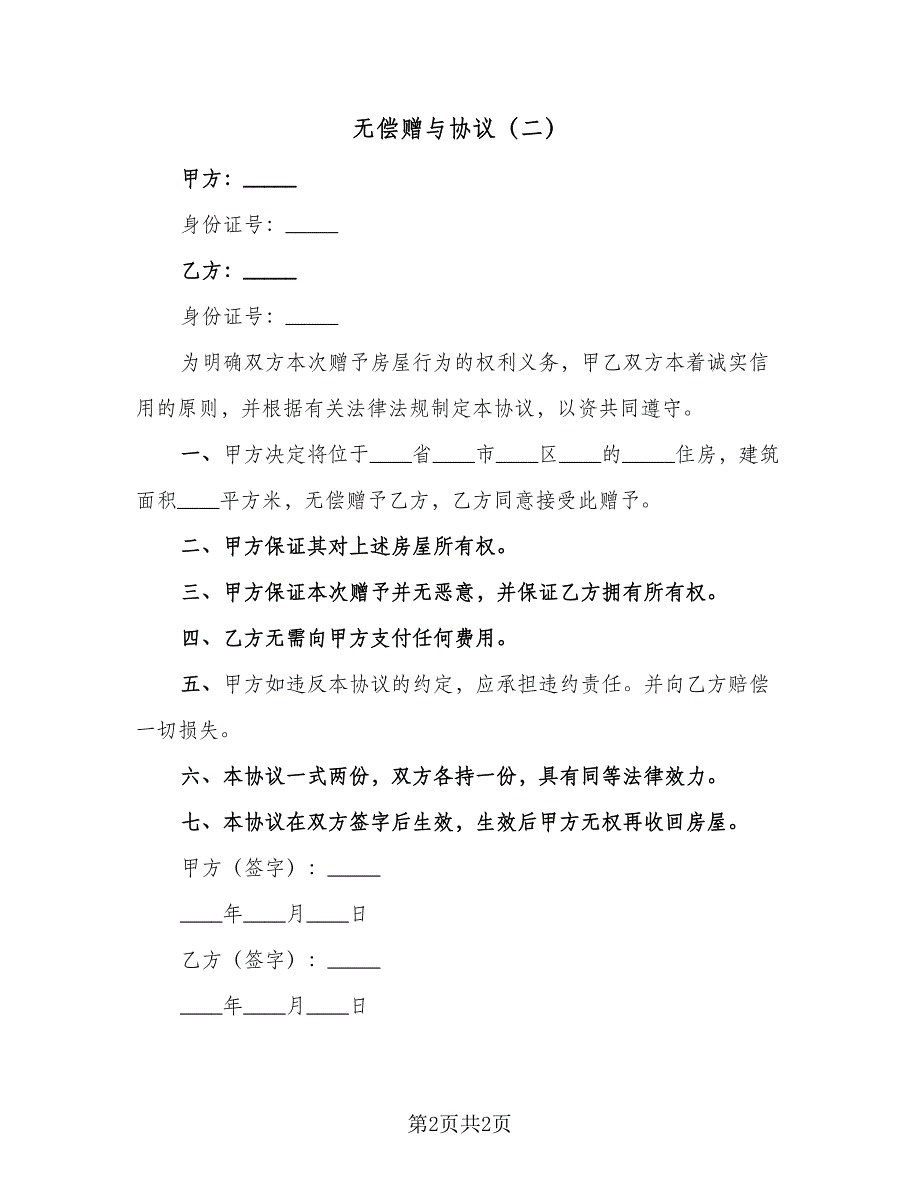 无偿赠与协议（二）
甲方：_____
身份证号：_____
乙方：_____
身份证号：_____
为明确双方本次赠予房屋行为的权利义务，甲乙双方本着诚实信
用的原则，并根据有关法律法规制定本协议，以资共同遵守。
一、甲方决定将位于____省____市____区____的_____住房，建筑
面积____平方米，无偿赠予乙方，乙方同意接受此赠予。
二、甲方保证其对上述房屋所有权。
三、甲方保证本次赠予并无恶意，并保证乙方拥有所有权。
四、乙方无需向甲方支付任何费用。
五、甲方如违反本协议的约定，应承担违约责任。并向乙方赔偿
一切损失。
六、本协议一式两份，双方各持一份，具有同等法律效力。
七、本协议在双方签字后生效，生效后甲方无权再收回房屋。
甲方（签字）：_____
____年____月____日
乙方（签字）：_____
____年____月____日
第2页共2页